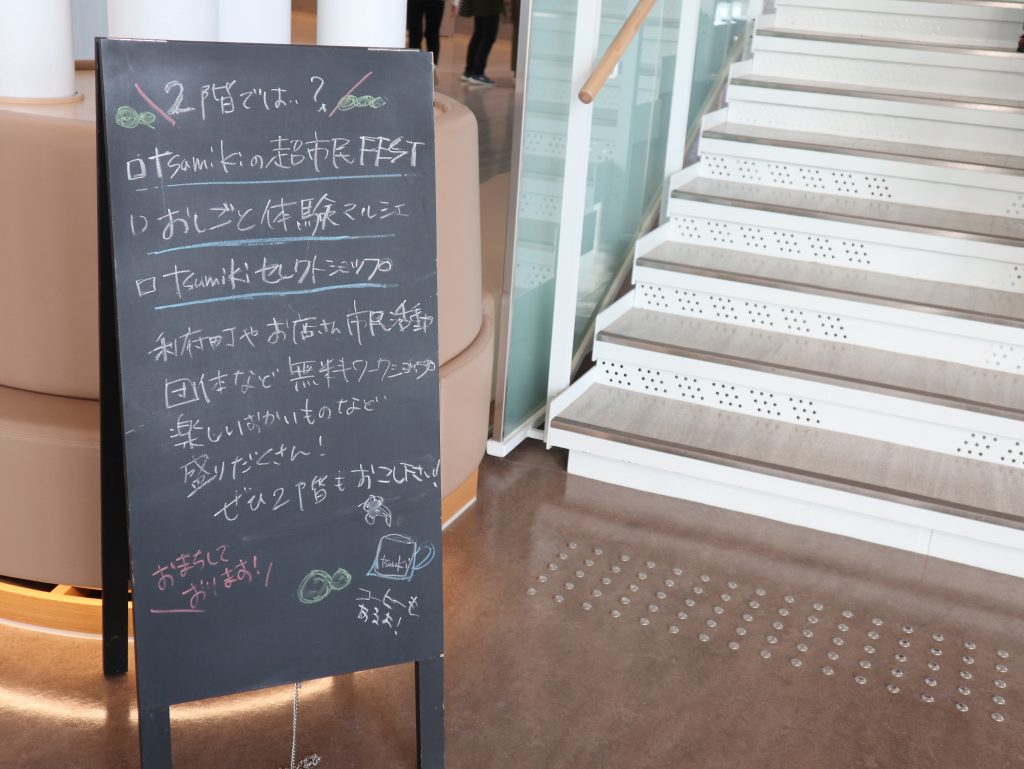 2階では‥?
□tsumikiの超市民FEST
□おしごと体験マルシェ
□tsumikiセレクトショップ
利府町やお店さん市民活動
団体など無料ワークショップ
楽しいおかいものなど
盛りだくさん!
ぜひ2階もおこし下さい!
おまちして
おります!!
tsumiki
コーヒーも
あるよ!